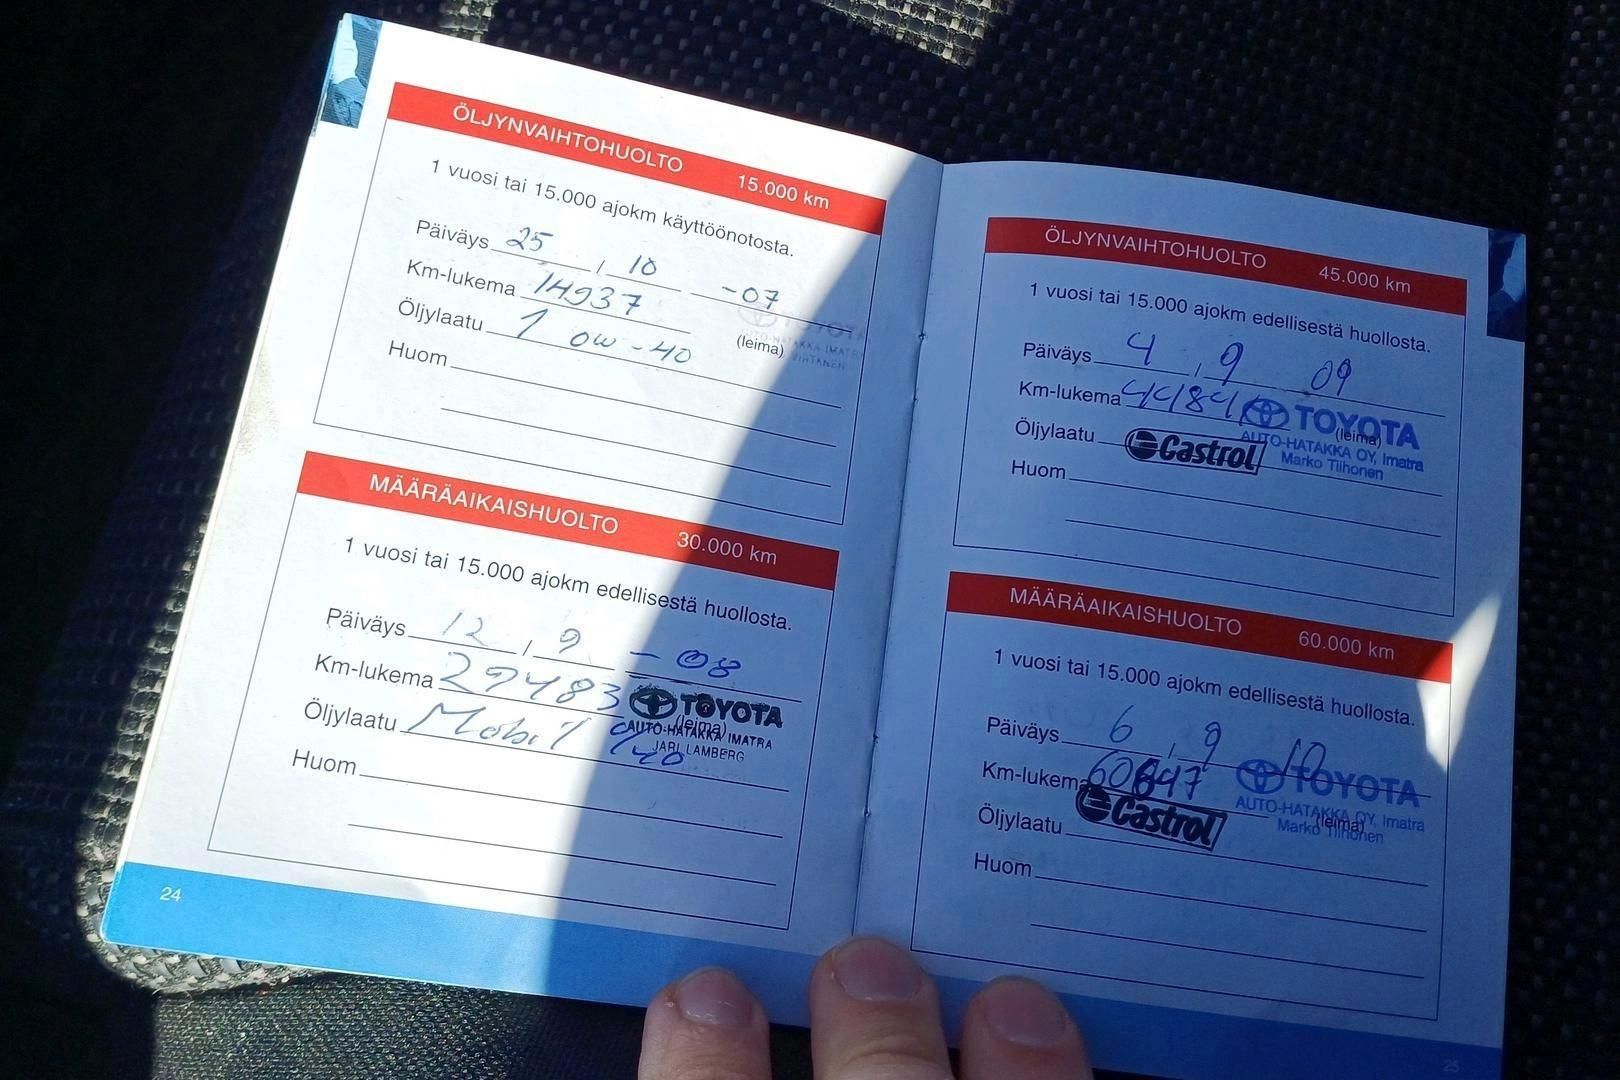 ÖLJYNVAIHTOHUOLTO 15.000 km
1 vuosi tai 15.000 ajokm käyttöönotosta.
Päiväys 25 , 10 -07
Km-lukema 14937
Öljylaatu 10W-40 (leima)
TOYOTA
AUTO-HATAKKA IMATRA
Huom
MÄÄRÄAIKAISHUOLTO 30.000 km
1 vuosi tai 15.000 ajokm edellisestä huollosta.
Päiväys 12 , 9 - 08
Km-lukema 29483
TOYOTA
Öljylaatu Mobil 0/40 (leima)
AUTO-HATAKKA IMATRA
JARI LAMBERG
Huom
24
ÖLJYNVAIHTOHUOLTO 45.000 km
1 vuosi tai 15.000 ajokm edellisestä huollosta.
Päiväys 4 , 9 09
Km-lukema 44841
TOYOTA
Öljylaatu Castrol (leima)
AUTO-HATAKKA OY, Imatra
Marko Tiihonen
Huom
MÄÄRÄAIKAISHUOLTO 60.000 km
1 vuosi tai 15.000 ajokm edellisestä huollosta.
Päiväys 6 , 9 10
Km-lukema
TOYOTA
Öljylaatu Castrol (leima)
AUTO-HATAKKA OY, Imatra
Marko Tiihonen
Huom
25